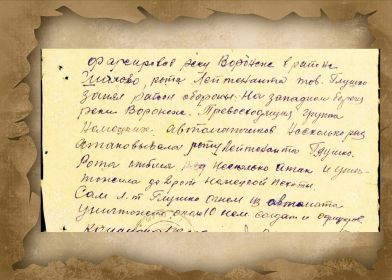 форсировав реку Воронеж в районе
Чижово, рота Лейтенанта тов. Глушко
занял район обороны. На западном берегу
реки Воронеж. Превосходящая группа
Немецких автоматчиков несколько раз
атаковывала роту Лейтенанта Глушко.
Рота отбила ряд несколько атак и унич-
тожила до 2 рот немецкой пехоты.
Сам л-т Глушко огнем из автомата
уничтожил около 10 нем. солдат и офицеров